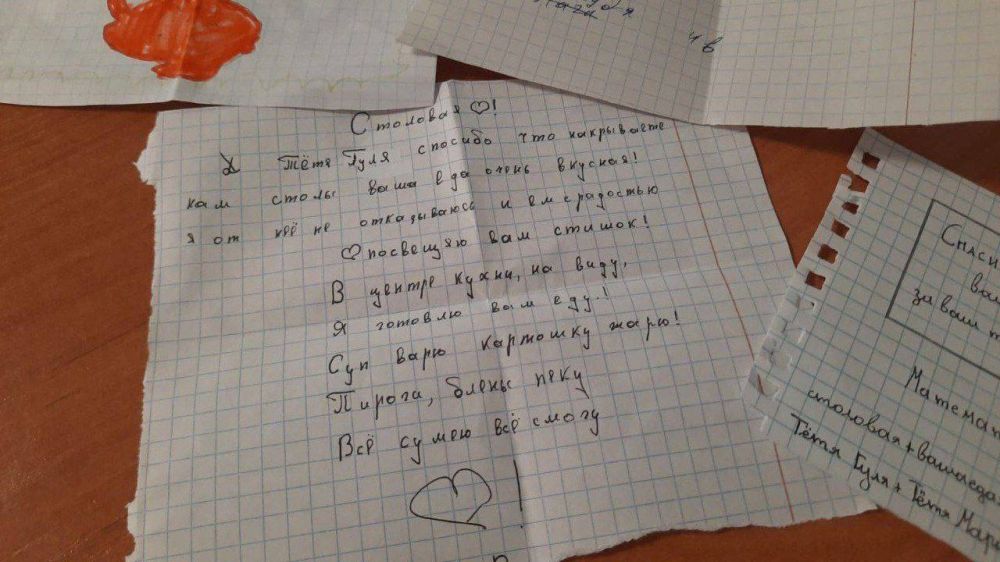 Столовая ♡!
Тётя Гуля спосибо что накрываете
нам столы ваша еда очень вкусная!
я от неё не отказываюсь и ем с радостью
♡посвещяю вам стишок!
В центре кухни, на виду,
Я готовлю вам еду.!
Суп варю картошку жарю!
Пирога, блены пеку
Всё сумею всё смогу
!
4 в
Спаси
ваш
за ваш т
Математ
столовая+вашаеда
Тётя Гуля+Тётя Мари